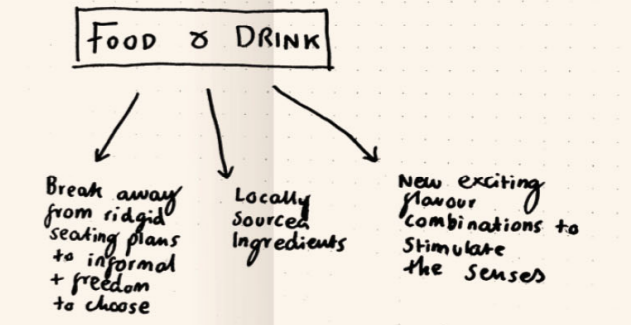 FOOD & DRINK
Break away
from ridgid
seating plans
to informal
+ freedom
to choose
Locally
sourced
Ingredients
New exciting
flavour
combinations to
stimulate
the senses